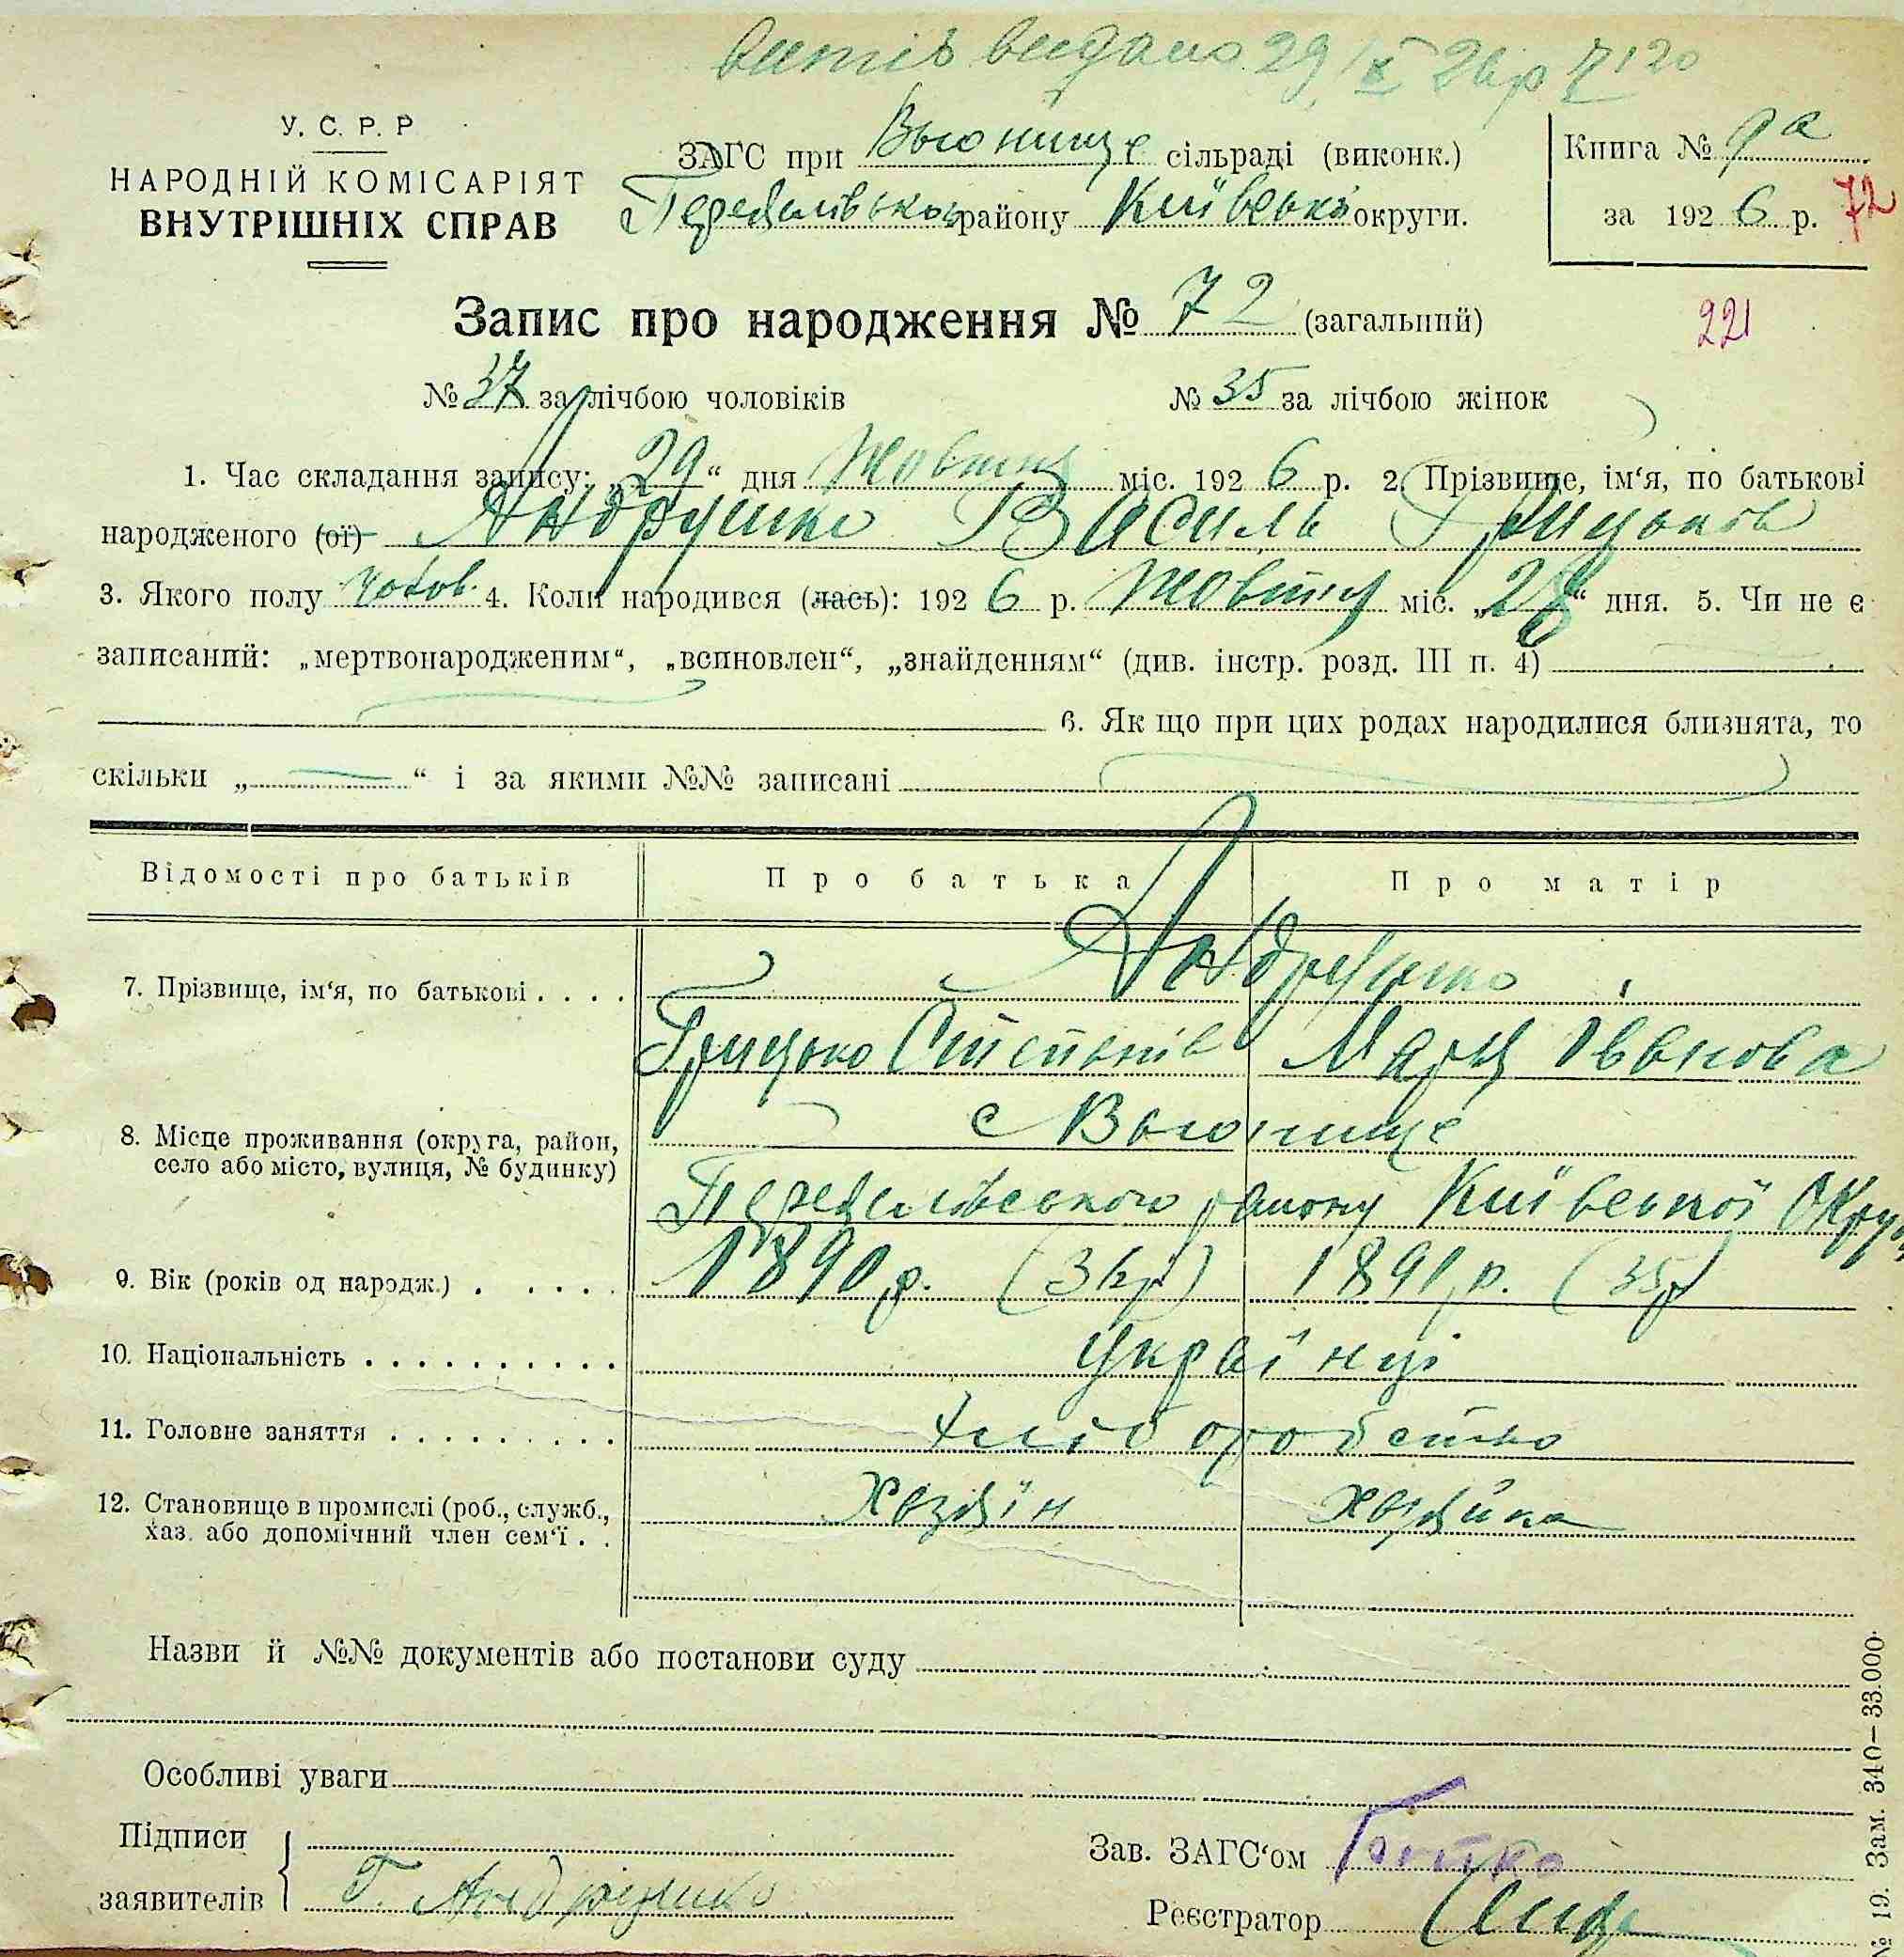 витяг видано 29/X 26 р № 120
У. С. Р. Р
НАРОДНІЙ КОМІСАРІЯТ
ВНУТРІШНІХ СПРАВ
ЗАГС при Вьюнище сільраді (виконк.)
району Київської округи.
Книга № 9а
за 1926 р. 72
Запис про народження № 72 (загальний)
221
№ 37 за лічбою чоловіків № 35 за лічбою жінок
1. Час складання запису: „29“ дня Жовтня міс. 1926 р. 2. Прізвище, ім‘я, по батькові
народженого (ої) Андрушко Василь Грицьков
3. Якого полу чолов. 4. Коли народився (лась): 1926 р. Жовтня міс. „28“ дня. 5. Чи не є
записаний: „мертвонародженим“, „всиновлен“, „знайденням“ (див. інстр. розд. III п. 4)
6. Як що при цих родах народилися близнята, то
скільки „ “ і за якими №№ записані
Відомості про батьків Про батька Про матір
7. Прізвище, ім‘я, по батькові . . . . Андрушко
Грицько Степанів Марія Іванова
8. Місце проживання (округа, район,
село або місто, вулиця, № будинку)
с Вьюнище
району Київської Округ
9. Вік (років од народж.) . . . . . 1890 р. (36 р) 1891 р. (35 р)
10. Національність . . . . . . . . . . Українці
11. Головне заняття . . . . . . . . . хліборобство
12. Становище в промислі (роб., служб.,
хаз. або допомічний член сем‘ї . .
Хазяїн хазяйка
Назви й №№ документів або постанови суду
Особливі уваги
Підписи
заявителів Г. Андрушко
Зав. ЗАГС‘ом
Реєстратор
№ 19. Зам. 340—33.000.